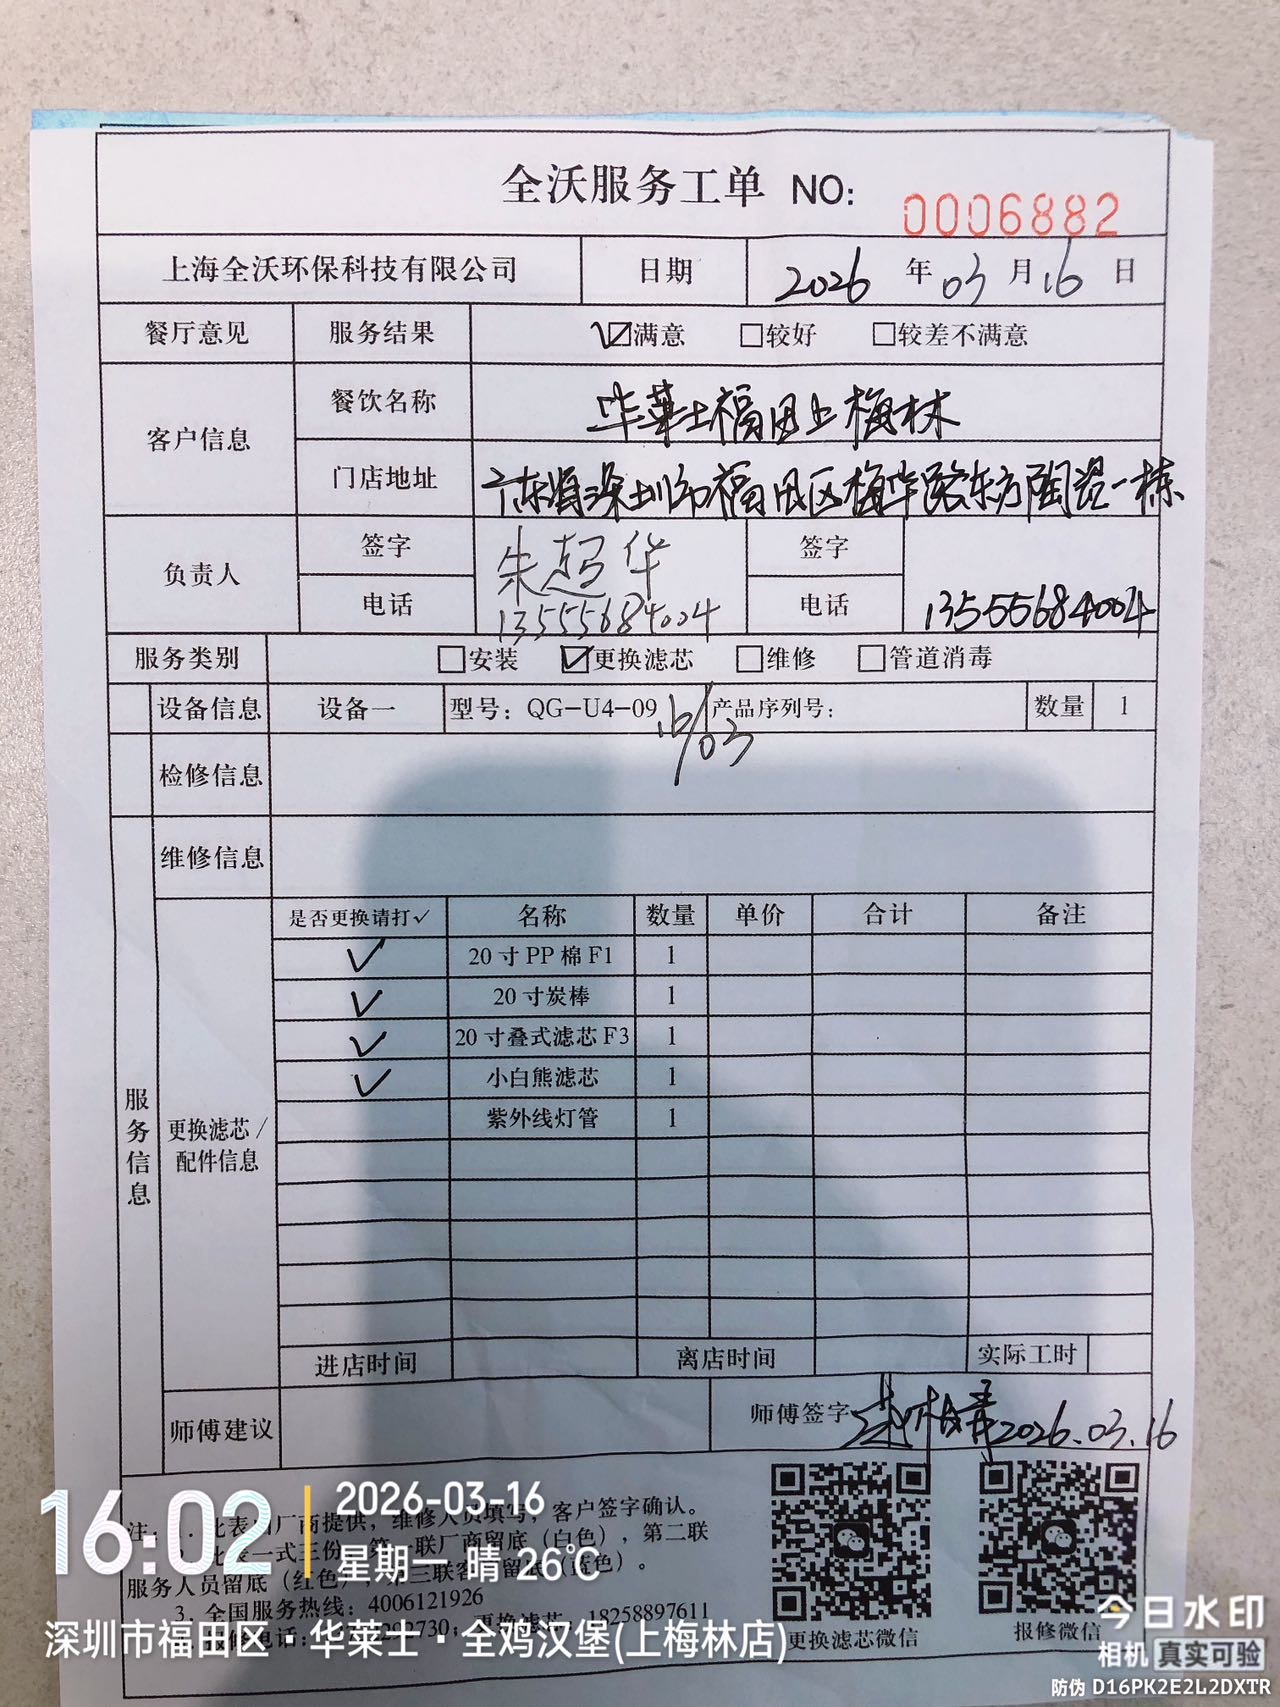 全沃服务工单 NO: 0006882
上海全沃环保科技有限公司 日期 2026 年 03 月 16 日
餐厅意见 服务结果 ☑满意 □较好 □较差不满意
客户信息 餐饮名称 华莱士福田上梅林
门店地址 广东省深圳市福田区梅华路东方陶瓷一栋
负责人 签字 朱超华 签字
电话 13555684004 电话 13555684004
服务类别 □安装 ☑更换滤芯 □维修 □管道消毒
设备信息 设备一 型号：QG-U4-09 产品序列号： 数量 1
16/03
检修信息
维修信息
是否更换请打✓ 名称 数量 单价 合计 备注
✓ 20寸PP棉F1 1
✓ 20寸炭棒 1
✓ 20寸叠式滤芯F3 1
✓ 小白熊滤芯 1
紫外线灯管 1
服务信息
更换滤芯/
配件信息
进店时间 离店时间 实际工时
师傅建议 师傅签字 2026.03.16
注：1、此表由厂商提供，维修人员填写，客户签字确认。
2、此表一式三份，第一联厂商留底（白色），第二联
服务人员留底（红色），第三联客户留底（蓝色）。
3、全国服务热线：4006121926
报修电话： 292730；更换滤芯：18258897611
更换滤芯微信 报修微信
16:02
2026-03-16
星期一 晴 26℃
深圳市福田区·华莱士·全鸡汉堡(上梅林店)
今日水印
相机 真实可验
防伪 D16PK2E2L2DXTR